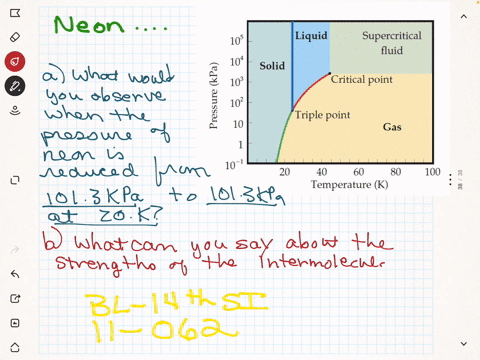 Neon ....
a) What would
you observe
when the
pressure of
neon is
reduced from
101.3KPa to 101.3kPa
at 20.K?
b) What can you say about the
strengths of the Intermolecular
BL-14th SI
11-062
Pressure (kPa)
10⁵
10⁴
10³
10²
10
1
10⁻¹
Solid
Liquid
Supercritical
fluid
Critical point
Triple point
Gas
20 40 60 80 100
Temperature (K)